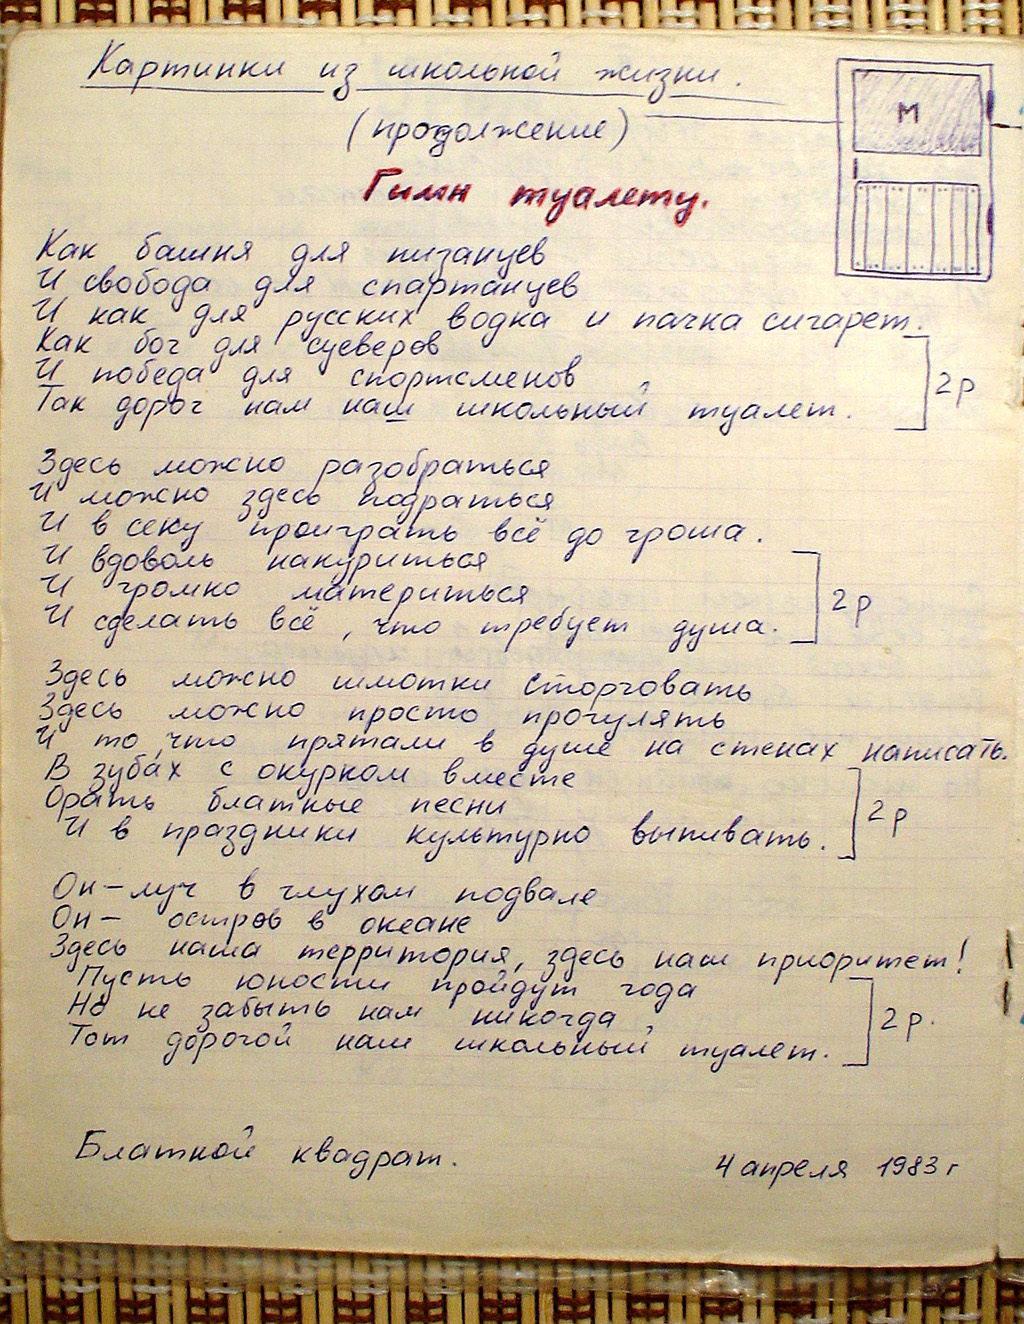 Картинки из школьной жизни.
(продолжение)
М
Гимн туалету.
Как башня для пизанцев
И свобода для спартанцев
И как для русских водка и пачка сигарет.
Как бог для суеверов
И победа для спортсменов
Так дорог нам наш школьный туалет.
2 р
Здесь можно разобраться
И можно здесь подраться
И в секу проиграть всё до гроша.
И вдоволь накуриться
И громко материться
И сделать всё, что требует душа.
2 р
Здесь можно шмотки сторговать
Здесь можно просто прогулять
И то, что прятали в душе на стенах написать.
В зубах с окурком вместе
Орать блатные песни
И в праздники культурно выпивать.
2 р
Он – луч в глухом подвале
Он – остров в океане
Здесь наша территория, здесь наш приоритет!
Пусть юности пройдут года
Но не забыть нам никогда
Тот дорогой наш школьный туалет.
2 р.
Блатной квадрат.
4 апреля 1983 г